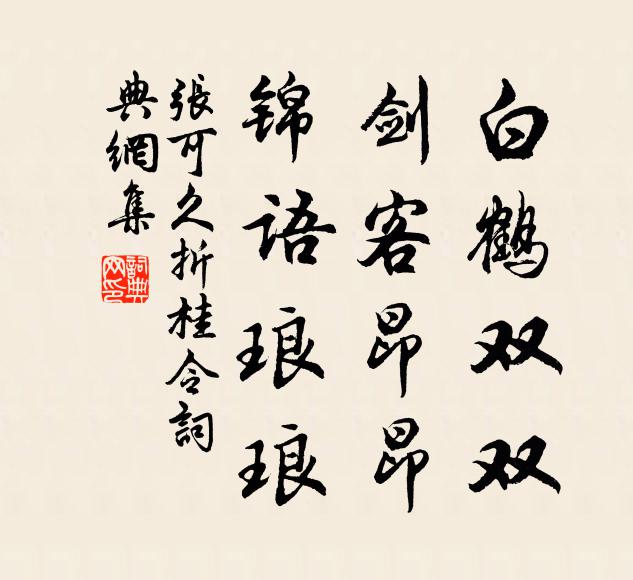 白鹤双双
剑客昂昂
锦语琅琅
張可久折桂令詞
典網集
詞典网印